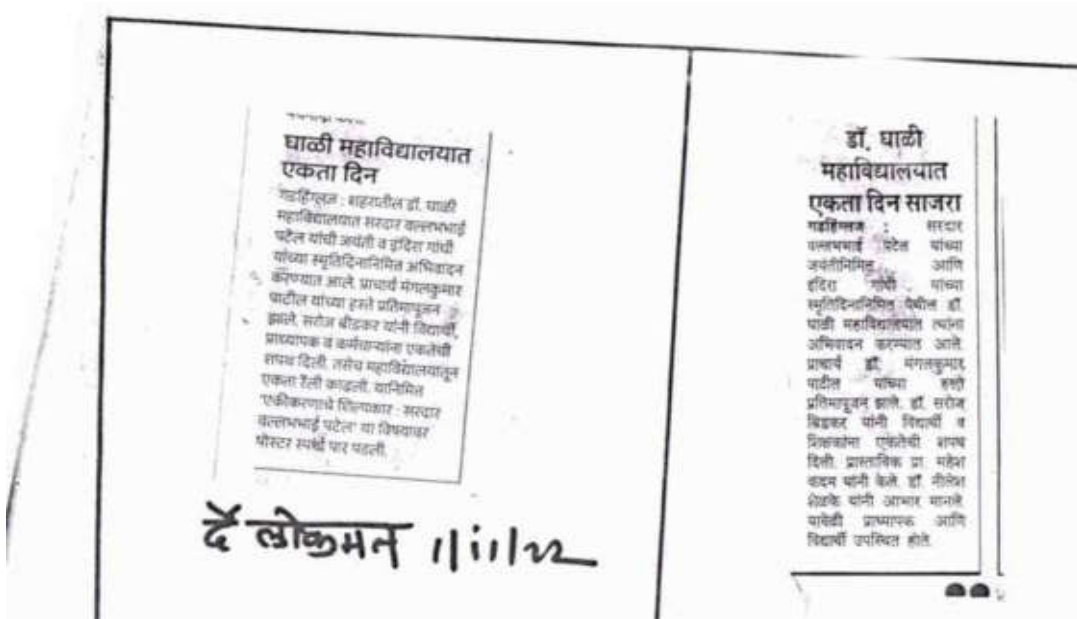 घाळी महाविद्यालयात
एकता दिन
गडहिंग्लज : शहरातील डॉ. घाळी
महाविद्यालयात सरदार वल्लभभाई
पटेल यांची जयंती व इंदिरा गांधी
यांच्या स्मृतिदिनानिमित्त अभिवादन
करण्यात आले. प्राचार्य मंगलकुमार
पाटील यांच्या हस्ते प्रतिमापूजन
झाले. सरोज बीडकर यांनी विद्यार्थी,
प्राध्यापक व कर्मचाऱ्यांना एकतेची
शपथ दिली. तसेच महाविद्यालयातून
एकता रैली काढली. यानिमित्त
'एकीकरणाचे शिल्पकार : सरदार
वल्लभभाई पटेल' या विषयावर
पोस्टर स्पर्धे पार पडली.
दै लोकमत 1/11/22
डॉ. घाळी
महाविद्यालयात
एकता दिन साजरा
गडहिंग्लज : सरदार
वल्लभभाई पटेल यांच्या
जयंतीनिमित्त आणि
इंदिरा गांधी यांच्या
स्मृतिदिनानिमित्त येथील डॉ.
घाळी महाविद्यालयात त्यांना
अभिवादन करण्यात आले.
प्राचार्य डॉ. मंगलकुमार
पाटील यांच्या हस्ते
प्रतिमापूजन झाले. डॉ. सरोज
बिडकर यांनी विद्यार्थी व
शिक्षकांना एकतेची शपथ
दिली. प्रास्ताविक प्रा. महेश
कदम यांनी केले. डॉ. नीलेश
शेळके यांनी आभार मानले.
यावेळी प्राध्यापक आणि
विद्यार्थी उपस्थित होते.